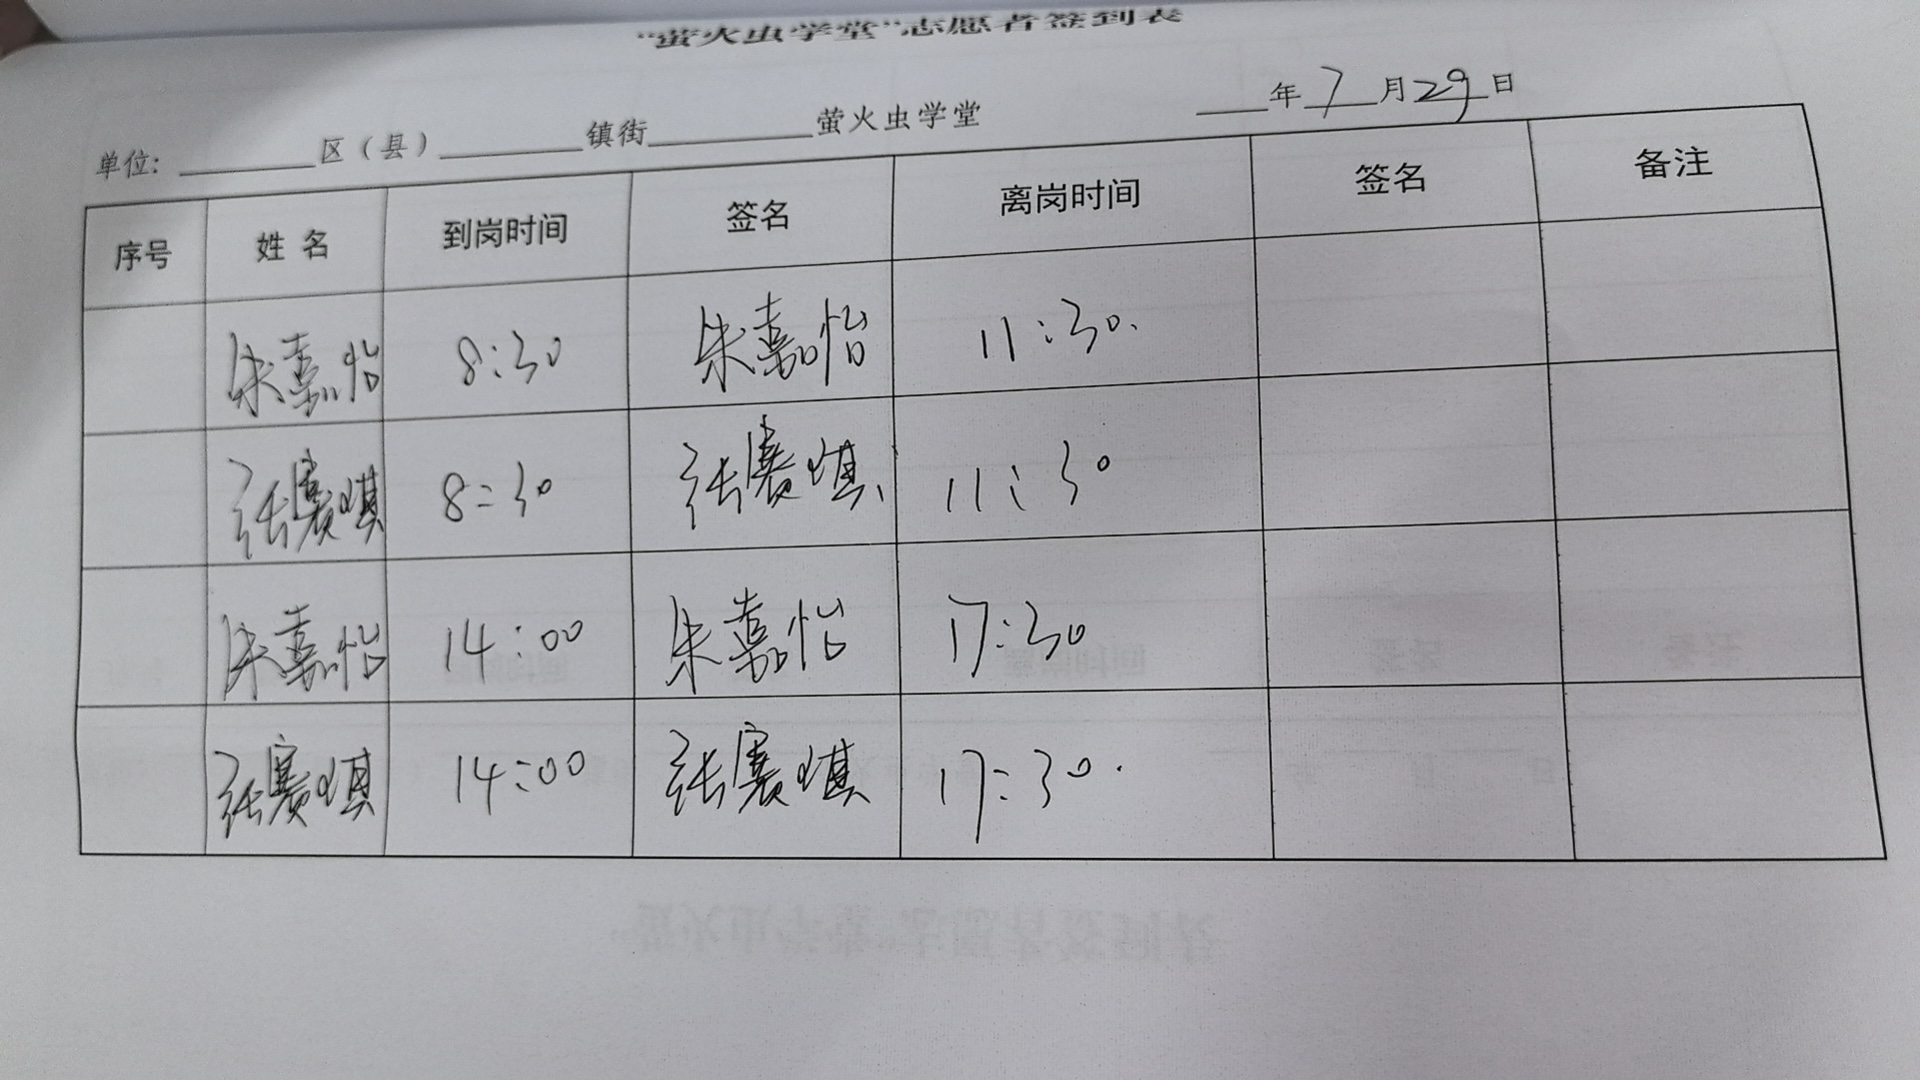 “萤火虫学堂”志愿者签到表
单位：______区（县）______镇街______萤火虫学堂 ____年 7 月 29 日
序号 姓名 到岗时间 签名 离岗时间 签名 备注
朱嘉怡 8:30 朱嘉怡 11:30.
张赛琪 8:30 张赛琪 11:30
朱嘉怡 14:00 朱嘉怡 17:30
张赛琪 14:00 张赛琪 17:30.